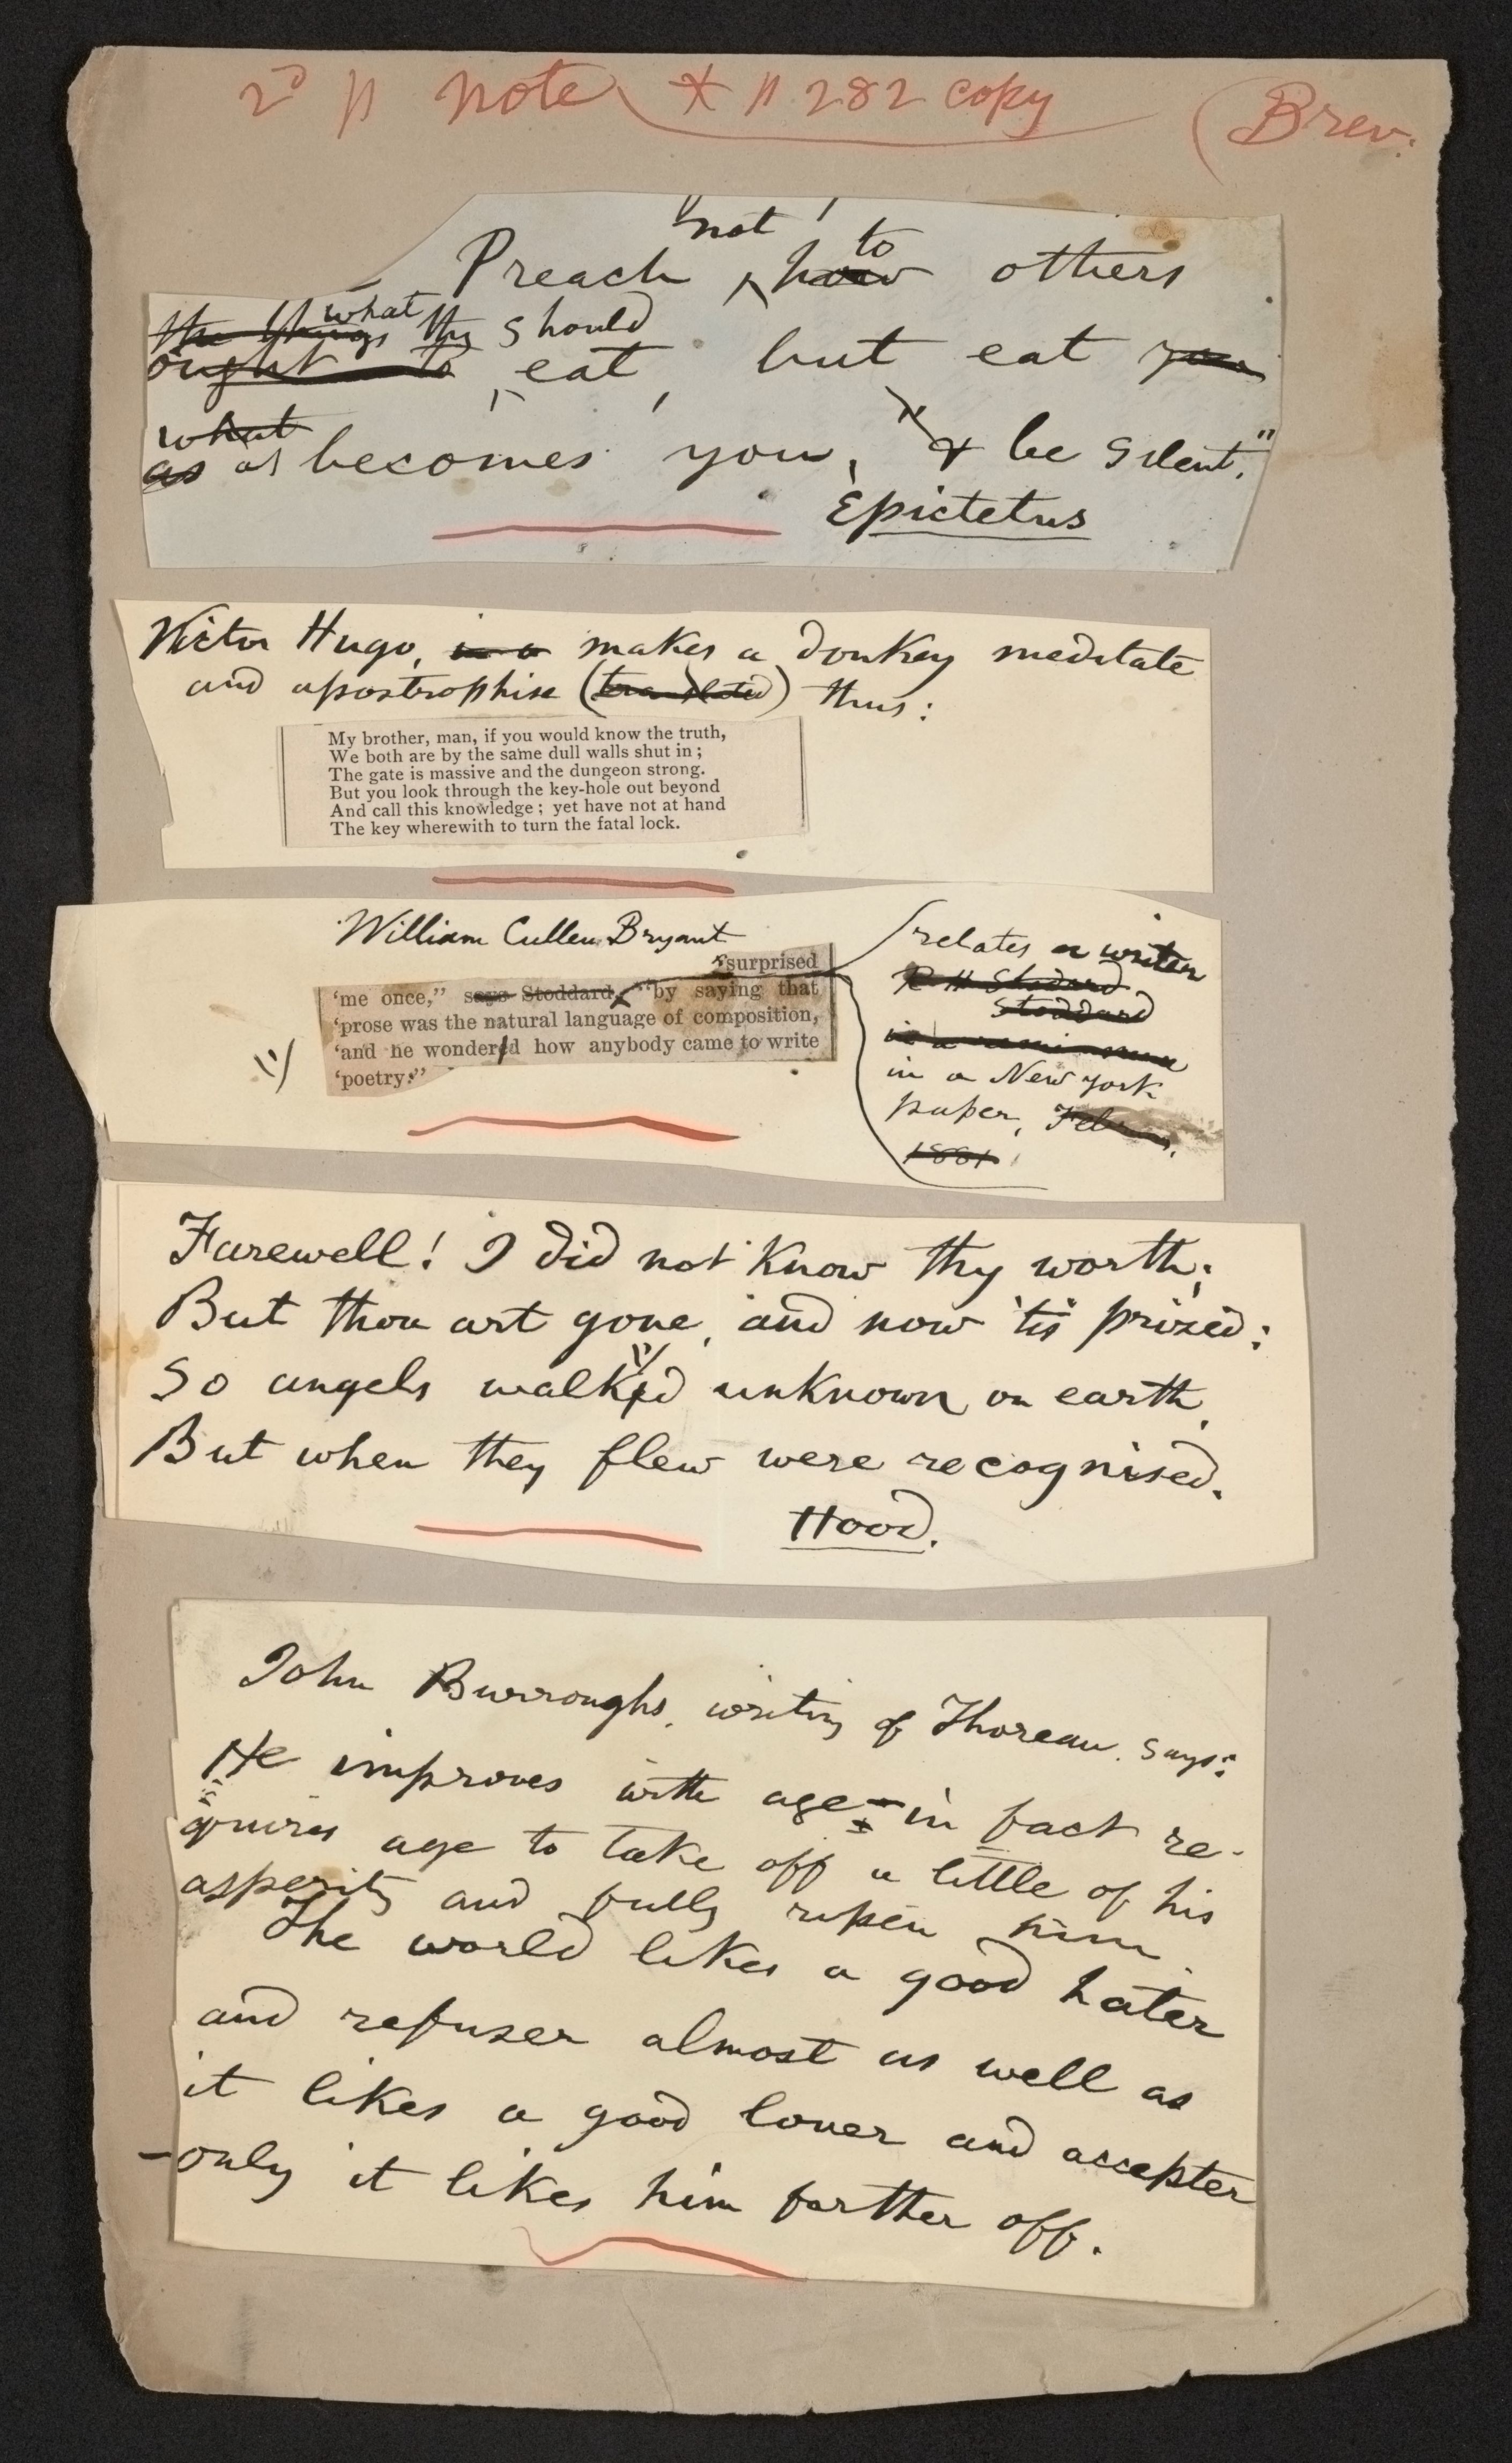 2d p note * p 282 copy (Brev.
not to
Preach how others
the things what they should
ought to eat, but eat you
what
as as becomes you, & be silent."
Epictetus
Victor Hugo, in a makes a donkey meditate
and apostrophise (translated) thus:
My brother, man, if you would know the truth,
We both are by the same dull walls shut in;
The gate is massive and the dungeon strong.
But you look through the key-hole out beyond
And call this knowledge; yet have not at hand
The key wherewith to turn the fatal lock.
William Cullen Bryant
"surprised
'me once," says Stoddard, "by saying that
'prose was the natural language of composition,
'and he wondered how anybody came to write
'poetry."
relates a writer
R H Stodard
Stoddard
in a
in a New York
paper, Februar,
1881
Farewell! I did not know thy worth;
But thou art gone, and now 'tis prized:
So angels walked unknown on earth,
But when they flew were recognised.
Hood.
John Burroughs, writing of Thoreau, says:
He improves with age—in fact re-
quires age to take off a little of his
asperity and fully ripen him.
The world likes a good hater
and refuser almost as well as
it likes a good lover and accepter
—only it likes him farther off.